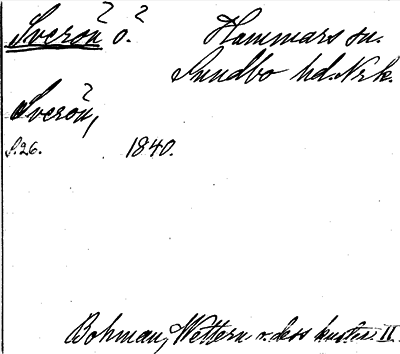 Sverön? ö.? Hammars sn.
Sundbo hd. Nrk.
Sverön?,
S. 26. 1840.
Bohman, Wettern o. dess kuster. II.